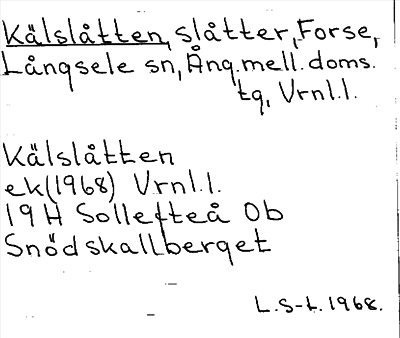 Kälslåtten, slåtter, Forse,
Långsele sn, Ång. mell. doms.
tg, Vrnl.l.
Kälslåtten
ek(1968) Vrnl.l.
19 H Sollefteå 0b
Snödskallberget
L.S-L. 1968.